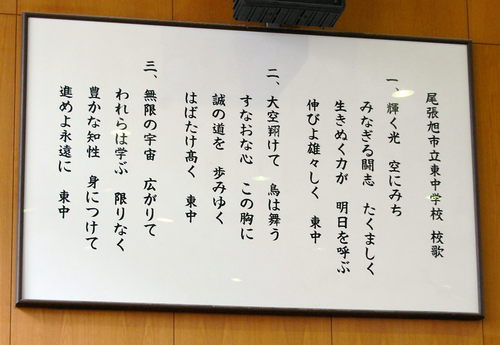 尾張旭市立東中学校 校歌
一、輝く光 空にみち
みなぎる闘志 たくましく
生きぬく力が 明日を呼ぶ
伸びよ雄々しく 東中
二、大空翔けて 鳥は舞う
すなおな心 この胸に
誠の道を 歩みゆく
はばたけ高く 東中
三、無限の宇宙 広がりて
われらは学ぶ 限りなく
豊かな知性 身につけて
進めよ永遠に 東中